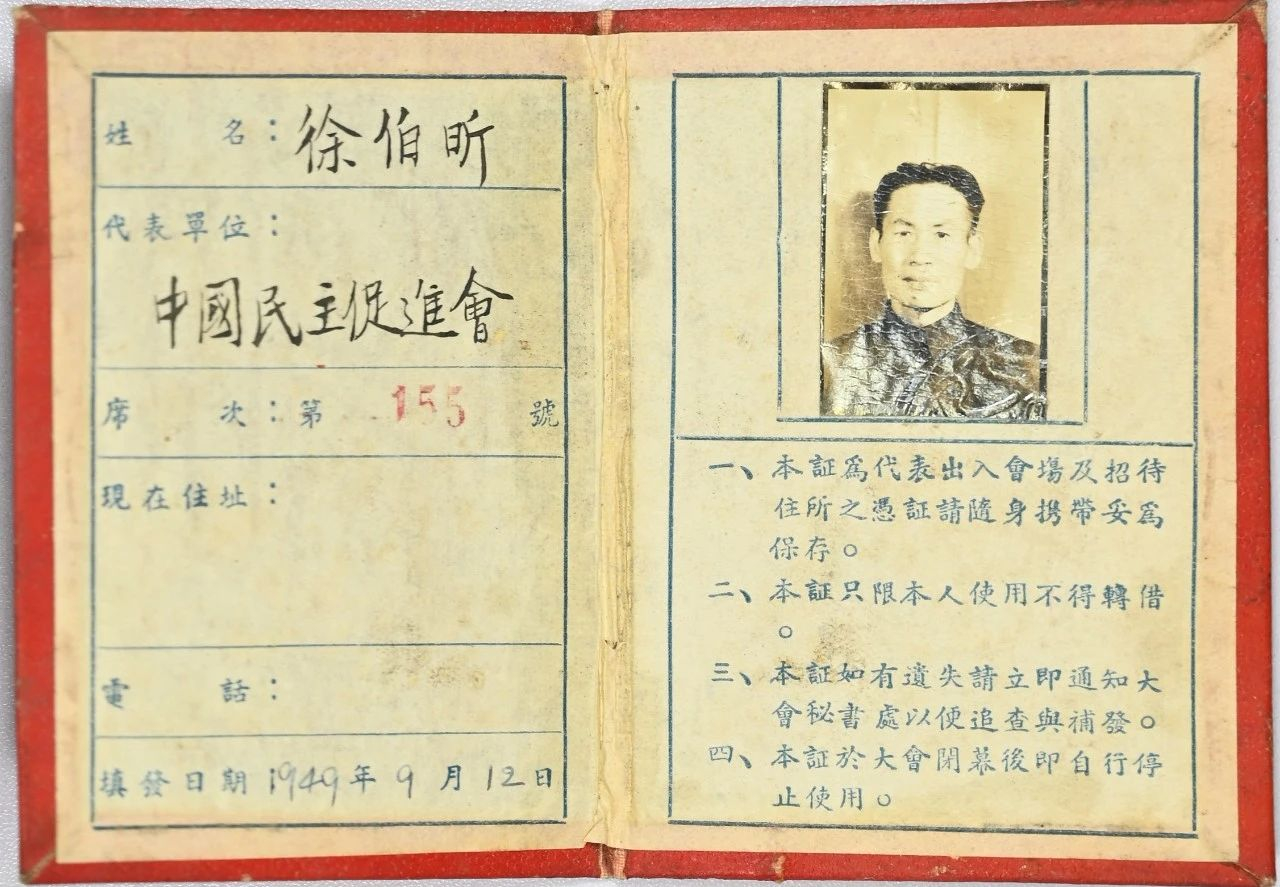 姓名：徐伯昕
代表單位：
中國民主促進會
席次：第 155 號
現在住址：
電話：
填發日期 1949年 9 月 12 日
一、本証爲代表出入會場及招待
住所之憑証請隨身携帶妥爲
保存。
二、本証只限本人使用不得轉借
。
三、本証如有遺失請立即通知大
會秘書處以便追查與補發。
四、本証於大會閉幕後即自行停
止使用。